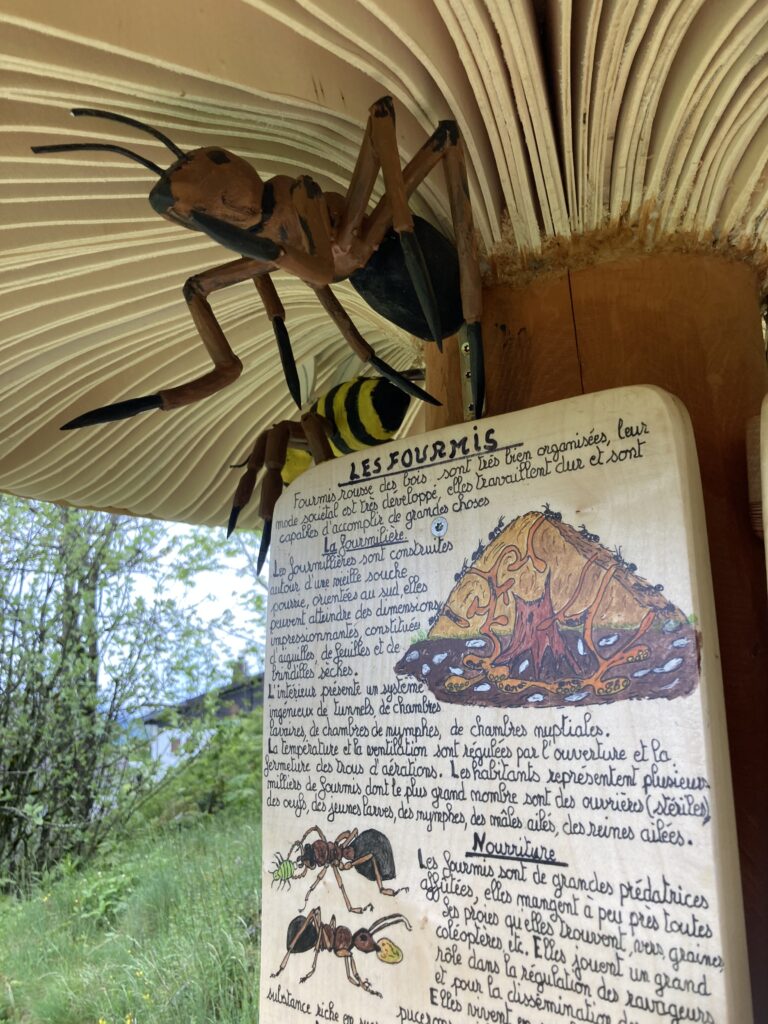 LES FOURMIS
Fourmis rousse des bois sont très bien organisées, leur
mode sociétal est très developpé, elles travaillent dur et sont
capables d'accomplir de grandes choses
La fourmilière.
Les fourmillières sont construites
autour d'une vieille souche
pourrie, orientées au sud, elles
peuvent atteindre des dimensions
impressionnantes, constituée
d'aiguilles, de feuilles et de
brindilles sèches.
L'intérieur présente un système
ingénieux de tunnels, de chambres
lavaires, de chambres de nymphes, de chambres nuptiales.
La température et la ventilation sont régulées par l'ouverture et la
fermeture des trous d'aérations. Les habitants représentent plusieurs
milliers de fourmis dont le plus grand nombre sont des ouvrières (stériles)
des oeufs, des jeunes larves, des nymphes, des mâles ailés, des reines ailées.
Nourriture
Les fourmis sont de grandes prédatrices
affûtées, elles mangent à peu pres toutes
les proies qu'elles trouvent, vers, graines,
coléoptères, etc. Elles jouent un grand
rôle dans la régulation des ravageurs
et pour la dissémination de
Elles vivent en
substance riche en
pucerons